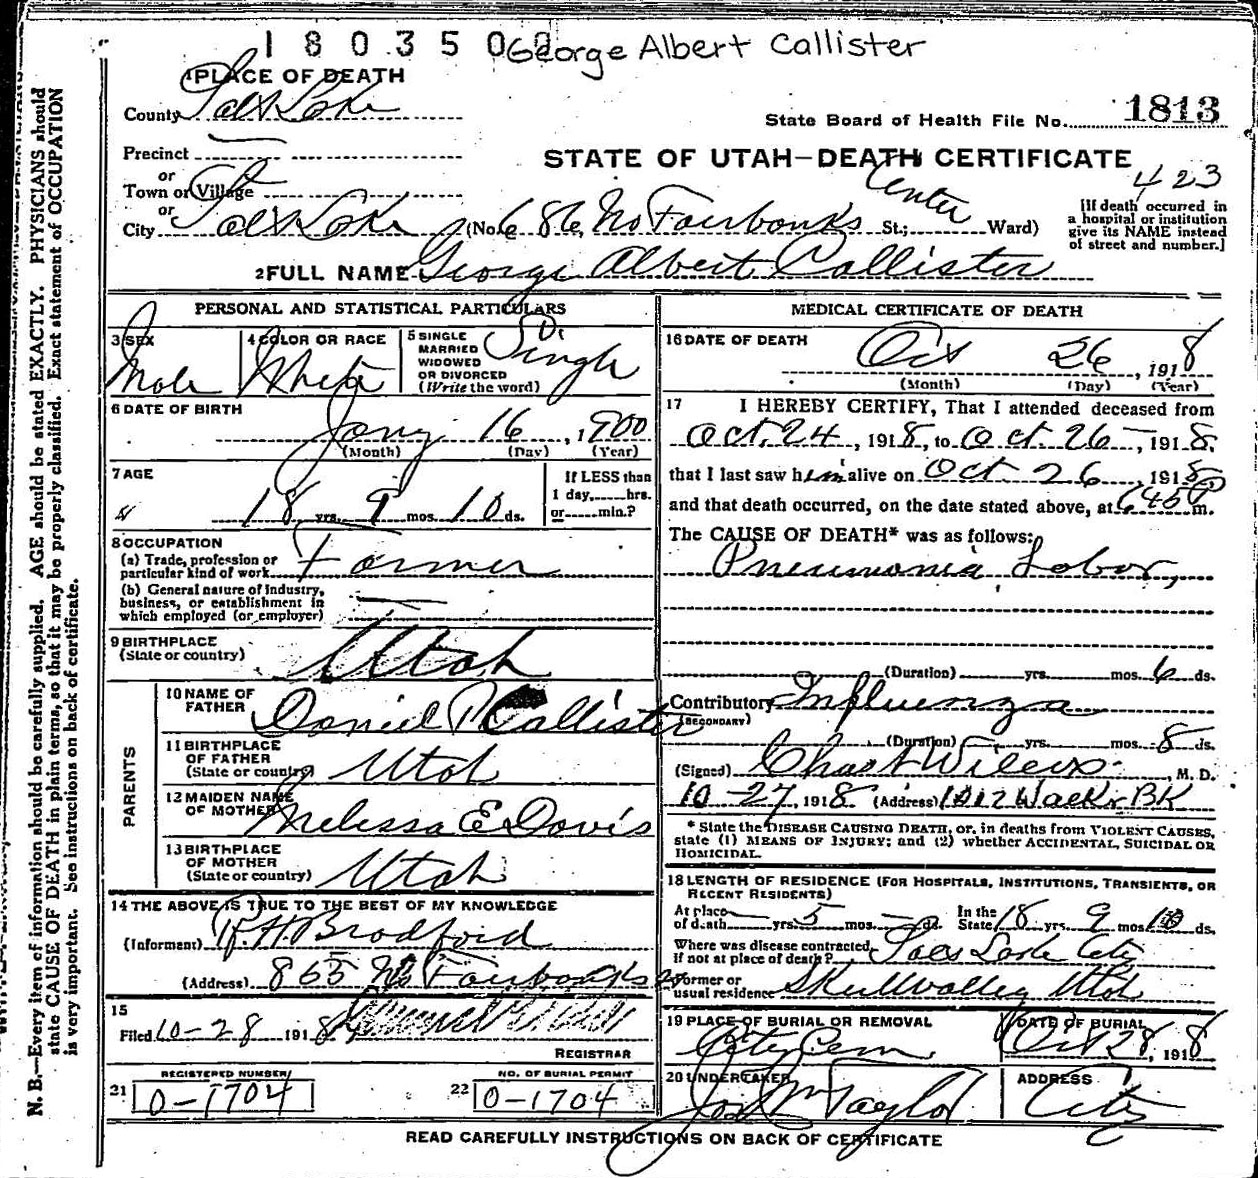 1803500 George Albert Callister
1 PLACE OF DEATH
County Salt Lake
State Board of Health File No. 1813
Precinct
or
Town or Village
or
City Salt Lake
STATE OF UTAH—DEATH CERTIFICATE
423
(No. 686, No Fairbanks St.; Center Ward)
[If death occurred in a hospital or institution give its NAME instead of street and number.]
2 FULL NAME George Albert Callister
PERSONAL AND STATISTICAL PARTICULARS
3 SEX Male
4 COLOR OR RACE White
5 SINGLE MARRIED WIDOWED OR DIVORCED (Write the word) Single
6 DATE OF BIRTH
Jany 16, 1900
(Month) (Day) (Year)
7 AGE
18 yrs. 9 mos. 10 ds.
If LESS than 1 day,......hrs. or......min.?
8 OCCUPATION
(a) Trade, profession or particular kind of work Farmer
(b) General nature of industry, business, or establishment in which employed (or employer)
9 BIRTHPLACE
(State or country) Utah
PARENTS
10 NAME OF FATHER Daniel P Callister
11 BIRTHPLACE OF FATHER (State or country) Utah
12 MAIDEN NAME OF MOTHER Melissa E Davis
13 BIRTHPLACE OF MOTHER (State or country) Utah
14 THE ABOVE IS TRUE TO THE BEST OF MY KNOWLEDGE
(Informent) R. H Bradford
(Address) 865 No Fairbanks
15
Filed 10-28 1918
REGISTRAR
REGISTERED NUMBER
21 0-1704
NO. OF BURIAL PERMIT
22 0-1704
MEDICAL CERTIFICATE OF DEATH
16 DATE OF DEATH
Oct 26, 1918
(Month) (Day) (Year)
17 I HEREBY CERTIFY, That I attended deceased from
Oct. 24, 1918, to Oct. 26, 1918.
that I last saw him alive on Oct. 26, 1918,
and that death occurred, on the date stated above, at 645 P m.
The CAUSE OF DEATH* was as follows:
Pneumonia Lobar,
(Duration) yrs. mos. 6 ds.
Contributory Influenza
(SECONDARY)
(Duration) yrs. mos. 8 ds.
(Signed) Wilcox, M. D.
10-27, 1918 (Address) 1012 Walkr BK
* State the DISEASE CAUSING DEATH, or, in deaths from VIOLENT CAUSES, state (1) MEANS OF INJURY; and (2) whether ACCIDENTAL, SUICIDAL OR HOMICIDAL.
18 LENGTH OF RESIDENCE (FOR HOSPITALS, INSTITUTIONS, TRANSIENTS, OR RECENT RESIDENTS)
At place of death yrs. 5 mos. ds. In the State 18 yrs. 9 mos. 10 ds.
Where was disease contracted, If not at place of death? Salt Lake City
Former or usual residence Skull Valley Utah
19 PLACE OF BURIAL OR REMOVAL
City Cem
DATE OF BURIAL
Oct 28, 1918
20 UNDERTAKER
Jos Wm Taylor
ADDRESS
City
READ CAREFULLY INSTRUCTIONS ON BACK OF CERTIFICATE
N. B.—Every item of information should be carefully supplied. AGE should be stated EXACTLY. PHYSICIANS should
state CAUSE OF DEATH in plain terms, so that it may be properly classified. Exact statement of OCCUPATION
is very important. See instructions on back of certificate.